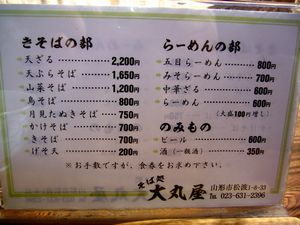 きそばの部
天ざる 2,200円
天ぷらそば 1,650円
山菜そば 1,200円
鳥そば 800円
月見たぬきそば 750円
かけそば 700円
きそば 700円
げそ天 200円
らーめんの部
五目らーめん 800円
みそらーめん 700円
中華ざる 600円
らーめん 600円
(大盛100円増し)
のみもの
ビール 600円
酒(一級酒) 350円
※お手数ですが、食券をお求め下さい。
そば処 大丸屋
山形市松波1-8-33
TEL 023-631-2396